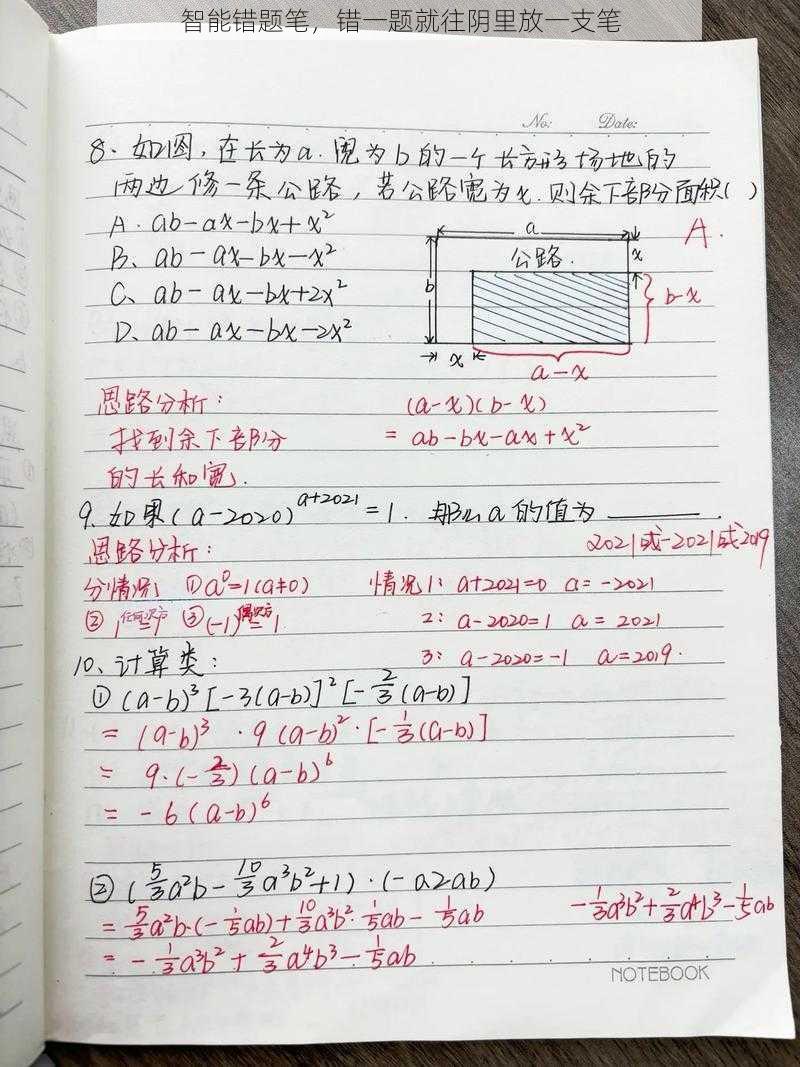 智能错题笔，错一题就往阴里放一支笔
No: Date:
8、如图，在长为a.宽为b的一个长方形场地的
两边修一条公路，若公路宽为x.则余下部分面积( )
A. ab-ax-bx+x²
A.
B、ab-ax-bx-x²
C、ab-ax-bx+2x²
D、ab-ax-bx-2x²
a
公路.
x
b
b-x
x
a-x
思路分析：
(a-x)(b-x)
找到余下部分
= ab-bx-ax+x²
的长和宽.
9、如果(a-2020)^(a+2021)=1. 那么a的值为 ______.
2021或-2021或2019
思路分析：
分情况： ①a⁰=1(a≠0)
情况1: a+2021=0 a=-2021
② 1^任何次方=1 ③(-1)^偶次方=1
2: a-2020=1 a=2021
3: a-2020=-1 a=2019.
10、计算类：
① (a-b)³[-3(a-b)]²[-2/3(a-b)]
= (a-b)³ · 9(a-b)²·[-1/3(a-b)]
= 9·(-2/3)(a-b)⁶
= -6(a-b)⁶
② (5/3a²b-10/3a³b²+1)·(-a2ab)
= 5/3a²b·(-1/5ab)+10/3a³b²·1/5ab-1/5ab
-1/3a³b²+2/3a⁴b³-1/5ab
= -1/3a³b²+2/3a⁴b³-1/5ab
NOTEBOOK